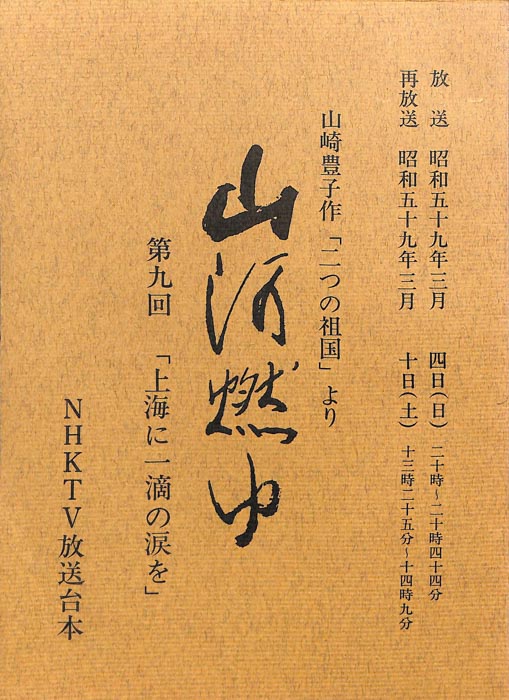 放送 昭和五十九年三月 四日(日) 二十時~二十時四十四分
再放送 昭和五十九年三月 十日(土) 十三時二十五分~十四時九分
山崎豊子作「二つの祖国」より
山河燃ゆ
第九回 「上海に一滴の涙を」
NHKTV放送台本